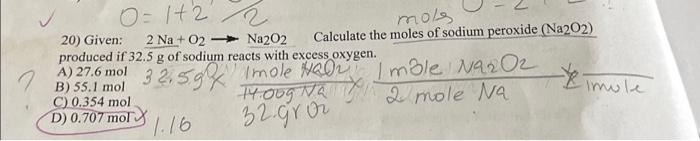 0 = 1+2 / 2
moles
20) Given: 2 Na + O2 → Na2O2 Calculate the moles of sodium peroxide (Na2O2)
produced if 32.5 g of sodium reacts with excess oxygen.
A) 27.6 mol
B) 55.1 mol
C) 0.354 mol
D) 0.707 mol
? 32.5g x 1mole Na2O2 x 1 mole Na2O2
2 mole Na
32.gr O2
1.16